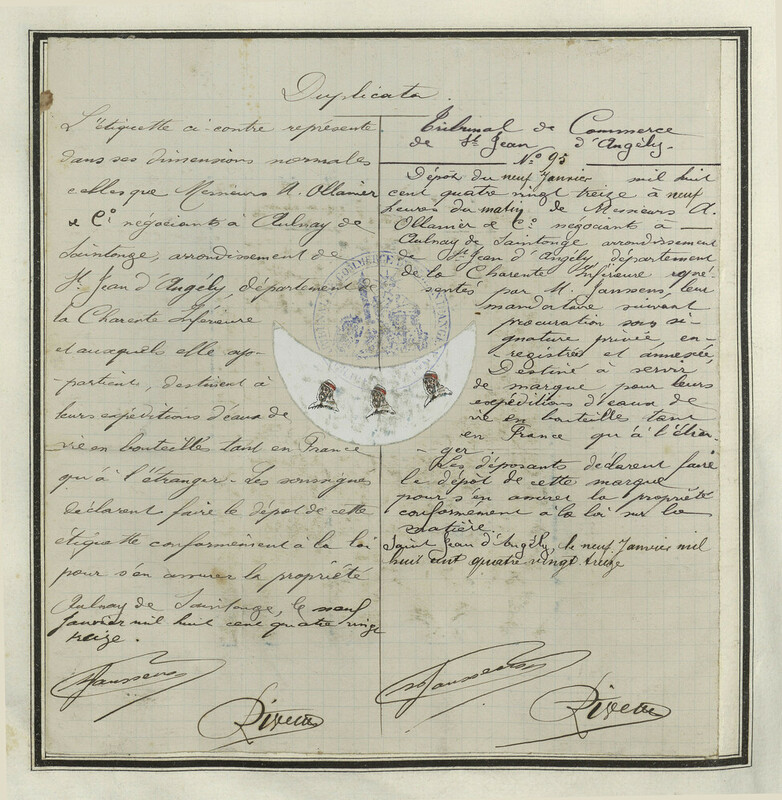 Duplicata.
L'étiquette ci-contre représente
dans ses dimensions normales
celles que Messieurs A. Ollanier
& Cº. négociants à Aulnay de
Saintonge, arrondissement de
St Jean d'Angély, département de
la Charente Inférieure
et auxquels elle app-
partient, destinent à
leurs expéditions d'eaux de
vie en bouteilles tant en France
qu'à l'étranger. Les soussignés
déclarent faire le dépôt de cette
étiquette conformément à la loi
pour s'en assurer la propriété
Aulnay de Saintonge, le neuf
janvier mil huit cent quatre vingt
treize.
Janssens
Rivette
Tribunal de Commerce
de St Jean d'Angély.
Nº. 95
Dépôt du neuf Janvier mil huit
cent quatre vingt treize à neuf
heures du matin de Messieurs A.
Ollanier & Cº. négociants à
Aulnay de Saintonge arrondissement
de St Jean d'Angély, département
de la Charente Inférieure repré-
sentés par M. Janssens, leur
mandataire suivant
procuration sous si-
gnature privée, en-
registrée et annexée,
Destiné à servir
de marque pour leurs
expéditions d'eaux de
vie en bouteilles tant
en France qu'à l'étran-
ger
Les déposants déclarent faire
le dépôt de cette marque
pour s'en assurer la propriété
conformément à la loi sur la
matière.
Saint Jean d'Angély, le neuf Janvier mil
huit cent quatre vingt treize
Janssens
Rivette